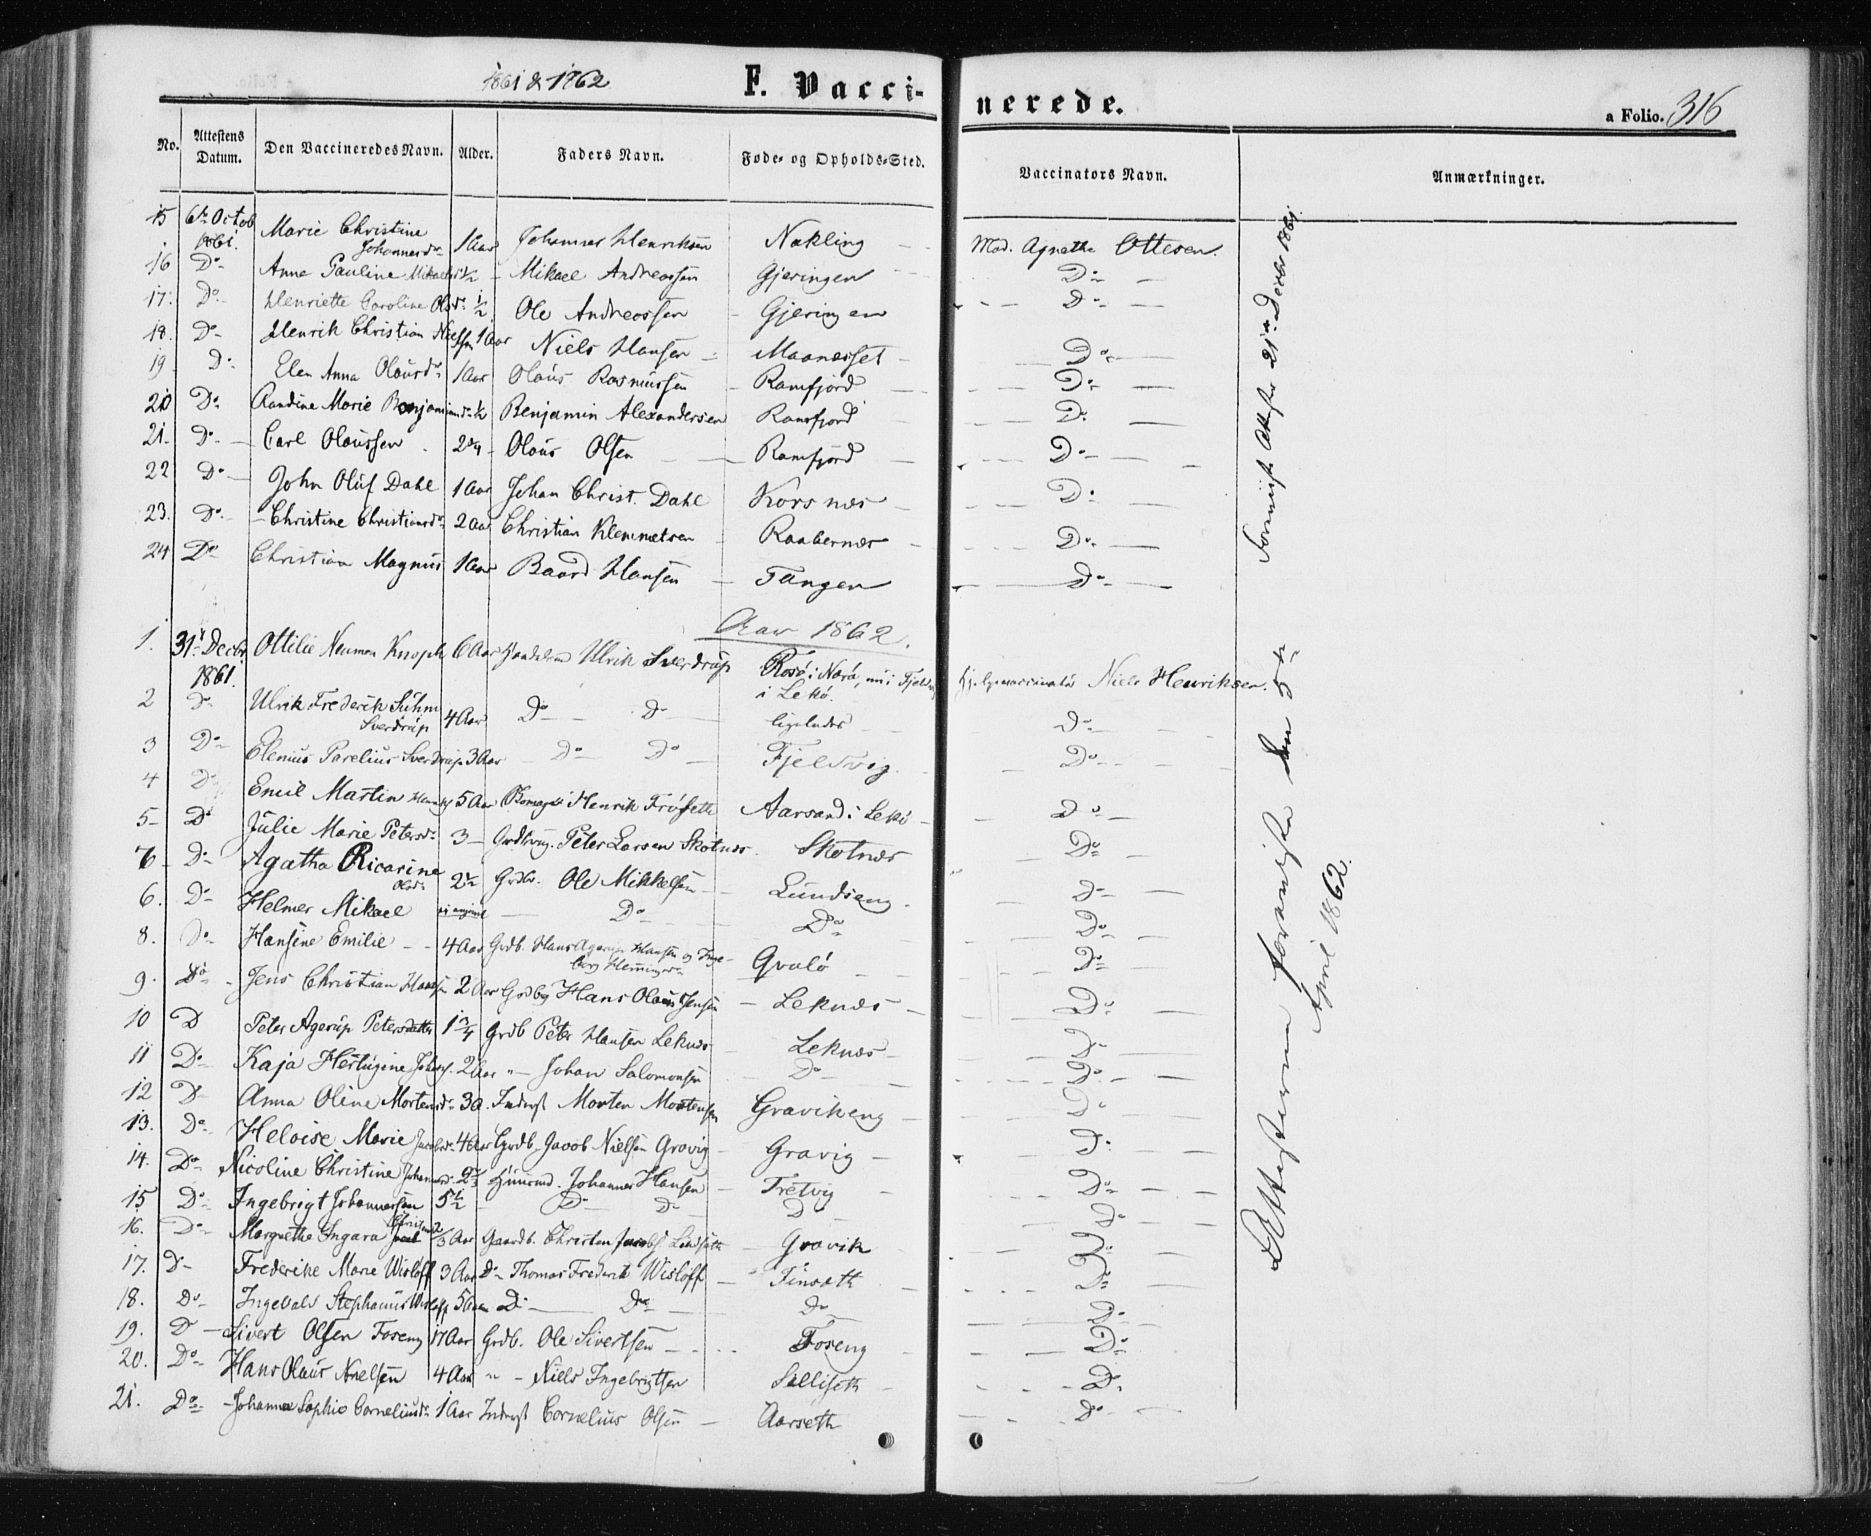 1861 & 1862
F. Vacci-
nerede.
a Folio. 316
No. Attestens Datum. Den Vaccineredes Navn. Alder. Faders Navn. Føde- og Opholds-Sted. Vaccinators Navn. Anmærkninger.
15 6te Octob 1861. Marie Christine Johannesdr 1 Aar Johannes Henriksen Nakling Mad. Agnethe Ottesen.
16 Do Anna Pauline Mikaelsd 1/2 Mikael Andreassen Gjeringen Do
17. Do Henriette Caroline Olsdr 1/2 Ole Andreassen Gjeringen Do
18. Do Henrik Christian Nielsen 1 Aar Niels Hansen Maanesset Do
19 Do Elen Anna Olausdr 1 Aar Olaus Rasmussen Ramfjord Do
20 Do Randine Marie Benjaminsdr 1/2 Benjamin Alexandersen Ramfjord Do
21. Do Carl Olaussen 2 3/4 Olaus Olsen Ramfjord Do
22 Do John Oluf Dahl 1 Aar Johan Christ. Dahl Korsnæs Do
23. Do Christine Christiansdr 2 Aar Christian Klemmetsen Raabernæs Do
24 Do Christian Magnus 1 Aar Baard Hansen Tangen Do
Aar 1862.
1. 31te Decbr 1861. Ottilie Neuman Knoph 6 Aar Ulrik Sverdrup Rosø i Narø, nu i Fjeldvig i Lekø. Hjelpevaccinatør Niels Henriksen.
2 Do Ulrik Frederik Suhm Sverdrup 4 Aar Do Do ligeledes Do
3 Do Elenius Parelius Sverdrup 3 Aar Do Do Fjeldvig Do
4 Do Emil Martin 5 Aar Henrik Frøseth Aarsand i Lekø Do
5 Do Julie Marie Petersdr 3 Peter Larsen Skotnes Skotnæs Do
7 Do Agatha Ricarine Olsdr 2 1/2 Grdbr. Ole Mikkelsen Lundseng Do
6. Do Helmer Mikael Do Do Do
8. Do Hansine Emilie 4 Aar Grdb. Hans Agerup Hansen og Ingeborg Henningsdr Qvalø Do
9. Do Jens Christian Hansen 2 Aar Grdbg Hans Olaus Jensen Leknæs Do
10 D Peter Agerup Petersdatter 1 3/4 Grdb Peter Hansen Leknæs Leknæs Do
11 Do Kaja Hertugine Johans. 2 Aar " Johan Salomonsen Do Do
12 D Anna Oline Mortensdr 3 A. Inderst Morten Mortensen Gravikeng Do
13. Do Heloise Marie Jacobsdr 4 Aar Grdb. Jacob Nielsen Gravig Gravig Do
14. Do Nicoline Christine Johannesd 2 1/2 Huusmd. Johannes Hansen Tretvig Do
15 Do Ingebrigt Johannessen 5 1/2 Do Do D Do
16. Do Margrethe Ingara 2/3 Aar Gaardb. Christen Jacobs Lindseth Gravik Do
17. D Frederike Marie Wisløff 3 Aar Do Thomas Frederik Wisløff Finsath Do
18. Do Ingevald Stephanus Wisløff 5 Aar D Do Do Do
19. D Sivert Olsen Foseng 17 Aar Grdb. Ole Sivertsen Foseng Do
20. Do Hans Olaus Nielsen 4 Aar " Niels Ingebrigtsen Salliseth D.
21. Do Johanna Sophie Corneliusdr 1 Aar Inderst Cornelius Olsen Aarseth Do
Attester 21de Decbr 1861.
Attesterne den 5te April 1862.